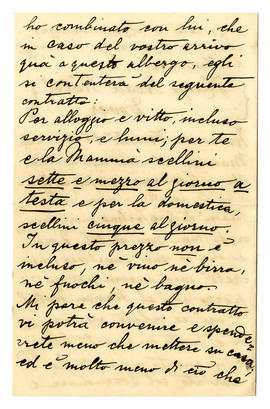 ho combinato con lui, che
in caso del vostro arrivo
quà a questo albergo, egli
si contenterà del seguente
contratto:
Per alloggio e vitto, incluso
servizio, e lumi; per te
e la Mamma scellini
sette e mezzo al giorno a
testa e per la domestica,
scellini cinque al giorno.
In questo prezzo non è
incluso, nè vino, nè birra,
nè fuochi, nè bagno.
Mi pare che questo contratto
vi potrà convenire e spende-
rete meno che mettere su casa,
ed è molto meno di ciò che